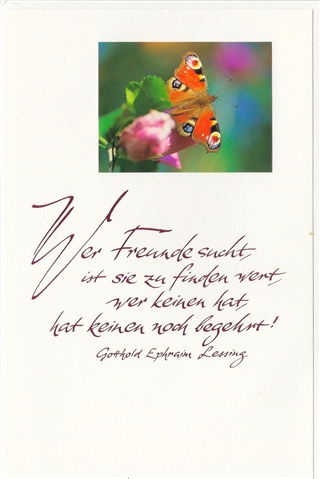 Wer Freunde sucht,
ist sie zu finden wert,
wer keinen hat,
hat keinen noch begehrt!
Gotthold Ephraim Lessing